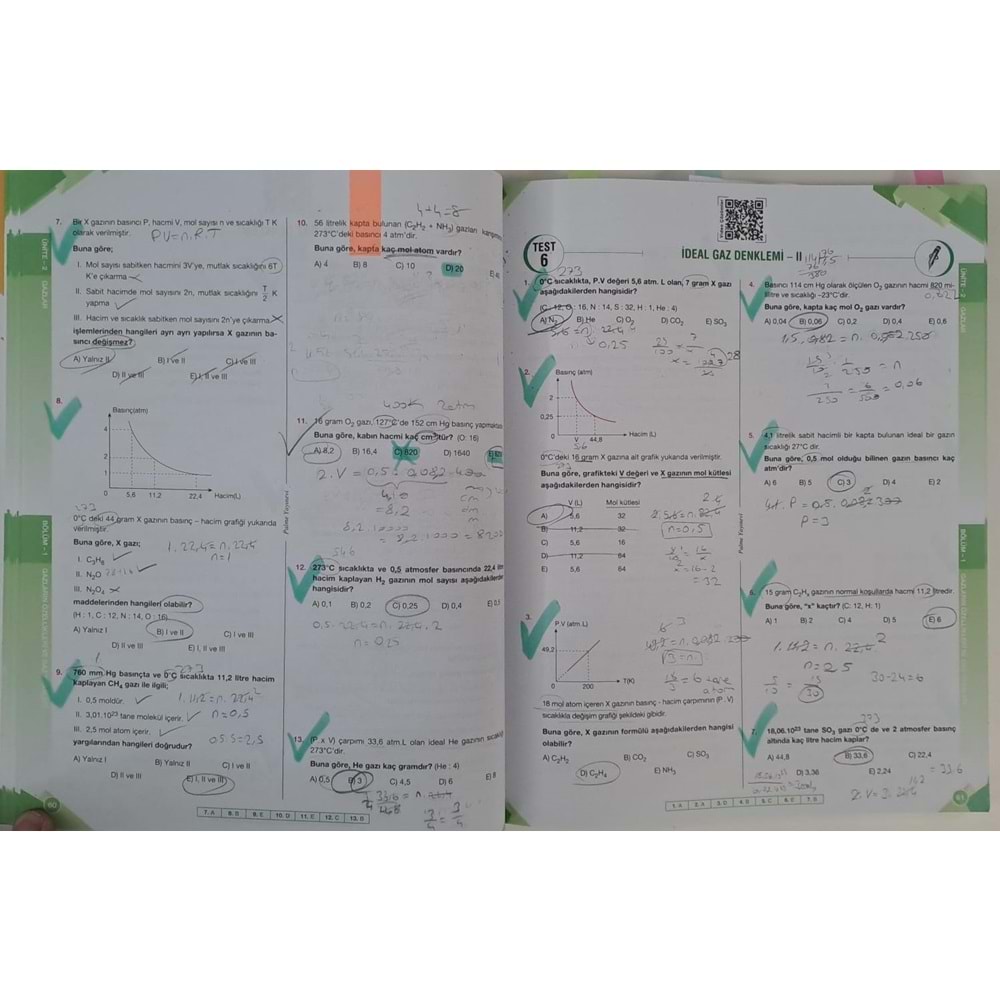 ÜNİTE - 2
GAZLAR
BÖLÜM - 1
60
7. Bir X gazının basıncı P, hacmi V, mol sayısı n ve sıcaklığı T K
olarak verilmiştir.
PV=n.R.T
Buna göre;
I. Mol sayısı sabitken hacmini 3V'ye, mutlak sıcaklığını 6T
K'e çıkarma
II. Sabit hacimde mol sayısını 2n, mutlak sıcaklığını T/2 K
yapma
III. Hacim ve sıcaklık sabitken mol sayısını 2n'ye çıkarma
işlemlerinden hangileri ayrı ayrı yapılırsa X gazının ba-
sıncı değişmez?
A) Yalnız II B) I ve II C) I ve III
D) II ve III E) I, II ve III
8.
Basınç(atm)
4
2
1
0 5,6 11,2 22,4 Hacim(L)
273
0°C deki 44 gram X gazının basınç – hacim grafiği yukarıda
verilmiştir.
Buna göre, X gazı;
1.22,4=n.22,4
n=1
I. C3H8
II. N2O
III. N2O4
maddelerinden hangileri olabilir?
(H : 1, C : 12, N : 14, O : 16)
A) Yalnız I B) I ve II C) I ve III
D) II ve III E) I, II ve III
9. 760 mm Hg basınçta ve 0°C sıcaklıkta 11,2 litre hacim
kaplayan CH4 gazı ile ilgili;
273
I. 0,5 moldür.
II. 3,01.10²³ tane molekül içerir.
n=0,5
III. 2,5 mol atom içerir.
yargılarından hangileri doğrudur?
A) Yalnız I B) Yalnız II C) I ve II
D) II ve III E) I, II ve III
4+4=8
10. 56 litrelik kapta bulunan (C2H2 + NH3) gazları karışımının
273°C'deki basıncı 4 atm'dir.
Buna göre, kapta kaç mol atom vardır?
A) 4 B) 8 C) 10 D) 20
400K 2atm
11. 16 gram O2 gazı, 127°C'de 152 cm Hg basınç yapmaktadır.
Buna göre, kabın hacmi kaç cm³ tür? (O: 16)
A) 8,2 B) 16,4 C) 820 D) 1640
2.V=0,5.0,082.400
=8,2
546
12. 273°C sıcaklıkta ve 0,5 atmosfer basıncında 22,4 litre
hacim kaplayan H2 gazının mol sayısı aşağıdakilerden
hangisidir?
A) 0,1 B) 0,2 C) 0,25 D) 0,4 E) 0,5
0,5.22,4=n.22,4.2
n=0,25
13. (P x V) çarpımı 33,6 atm.L olan ideal He gazının sıcaklığı
273°C'dir.
Buna göre, He gazı kaç gramdır? (He : 4)
A) 0,5 B) 3 C) 4,5 D) 6 E) 8
7. A 8. B 9. E 10. D 11. E 12. C 13. B
Palme Yayınevi
TEST
6
İDEAL GAZ DENKLEMİ – II
273
1. 0°C sıcaklıkta, P.V değeri 5,6 atm. L olan, 7 gram X gazı
aşağıdakilerden hangisidir?
(C : 12, O : 16, N : 14, S : 32, H : 1, He : 4)
A) N2 B) He C) O2 D) CO2 E) SO3
0,25
28
2.
Basınç (atm)
1
0,25
V 44,8 Hacim (L)
5,6
0°C'deki 16 gram X gazına ait grafik yukarıda verilmiştir.
Buna göre, grafikteki V değeri ve X gazının mol kütlesi
aşağıdakilerden hangisidir?
V (L) Mol kütlesi
A) 5,6 32
B) 11,2 32
C) 5,6 16
D) 11,2 64
E) 5,6 64
n=0,5
x=16.2
=32
3.
P.V (atm.L)
49,2
0 200 T(K)
16 mol atom içeren X gazının basınç - hacim çarpımının (P .V)
sıcaklıkla değişim grafiği şekildeki gibidir.
Buna göre, X gazının formülü aşağıdakilerden hangisi
olabilir?
A) C2H2 B) CO2 C) SO3
D) C2H4 E) NH3
4. Basıncı 114 cm Hg olarak ölçülen O2 gazının hacmi 820 mi-
litre ve sıcaklığı –23°C'dir.
Buna göre, kapta kaç mol O2 gazı vardır?
A) 0,04 B) 0,06 C) 0,2 D) 0,4 E) 0,6
5. 4,1 litrelik sabit hacimli bir kapta bulunan ideal bir gazın
sıcaklığı 27°C'dir.
Buna göre, 0,5 mol olduğu bilinen gazın basıncı kaç
atm'dir?
A) 6 B) 5 C) 3 D) 4 E) 2
P=3
6. 15 gram C2Hx gazının normal koşullarda hacmi 11,2 litredir.
Buna göre, "x" kaçtır? (C: 12, H: 1)
A) 1 B) 2 C) 4 D) 5 E) 6
30-24=6
273
7. 18,06.10²³ tane SO3 gazı 0°C de ve 2 atmosfer basınç
altında kaç litre hacim kaplar?
A) 44,8 B) 33,6 C) 22,4
D) 3,36 E) 2,24
=33,6
1. A 2. A 3. D 4. B 5. C 6. E 7. B
Palme Yayınevi
ÜNİTE - 2
GAZLAR
BÖLÜM - 1
61